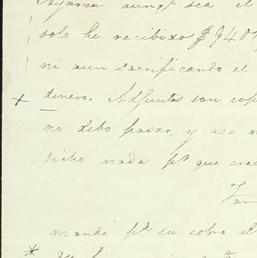 aunqe sea el
solo he recibido $940
ni aun sacrificando el
dinero. Adjuntas son cop
no debo pasar, y así
dicho nada pr que cre
mandé pa su cobro al